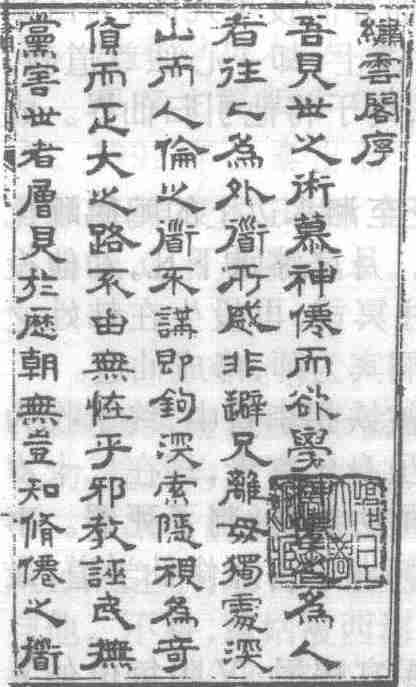 繡雲閣序
吾見世之術慕神僊而欲學為人
者往〻為外衟所惑非避兄離母獨處深
山而人倫之衟不講即鉤深索隱視為奇
貨而正大之路不由無恠乎邪教誣民橆
黨害世者層見於歷朝無豈知脩僊之衟